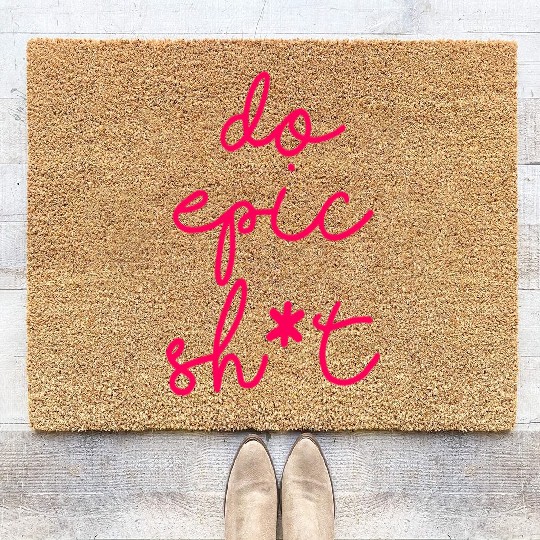 do
epic
sh*t